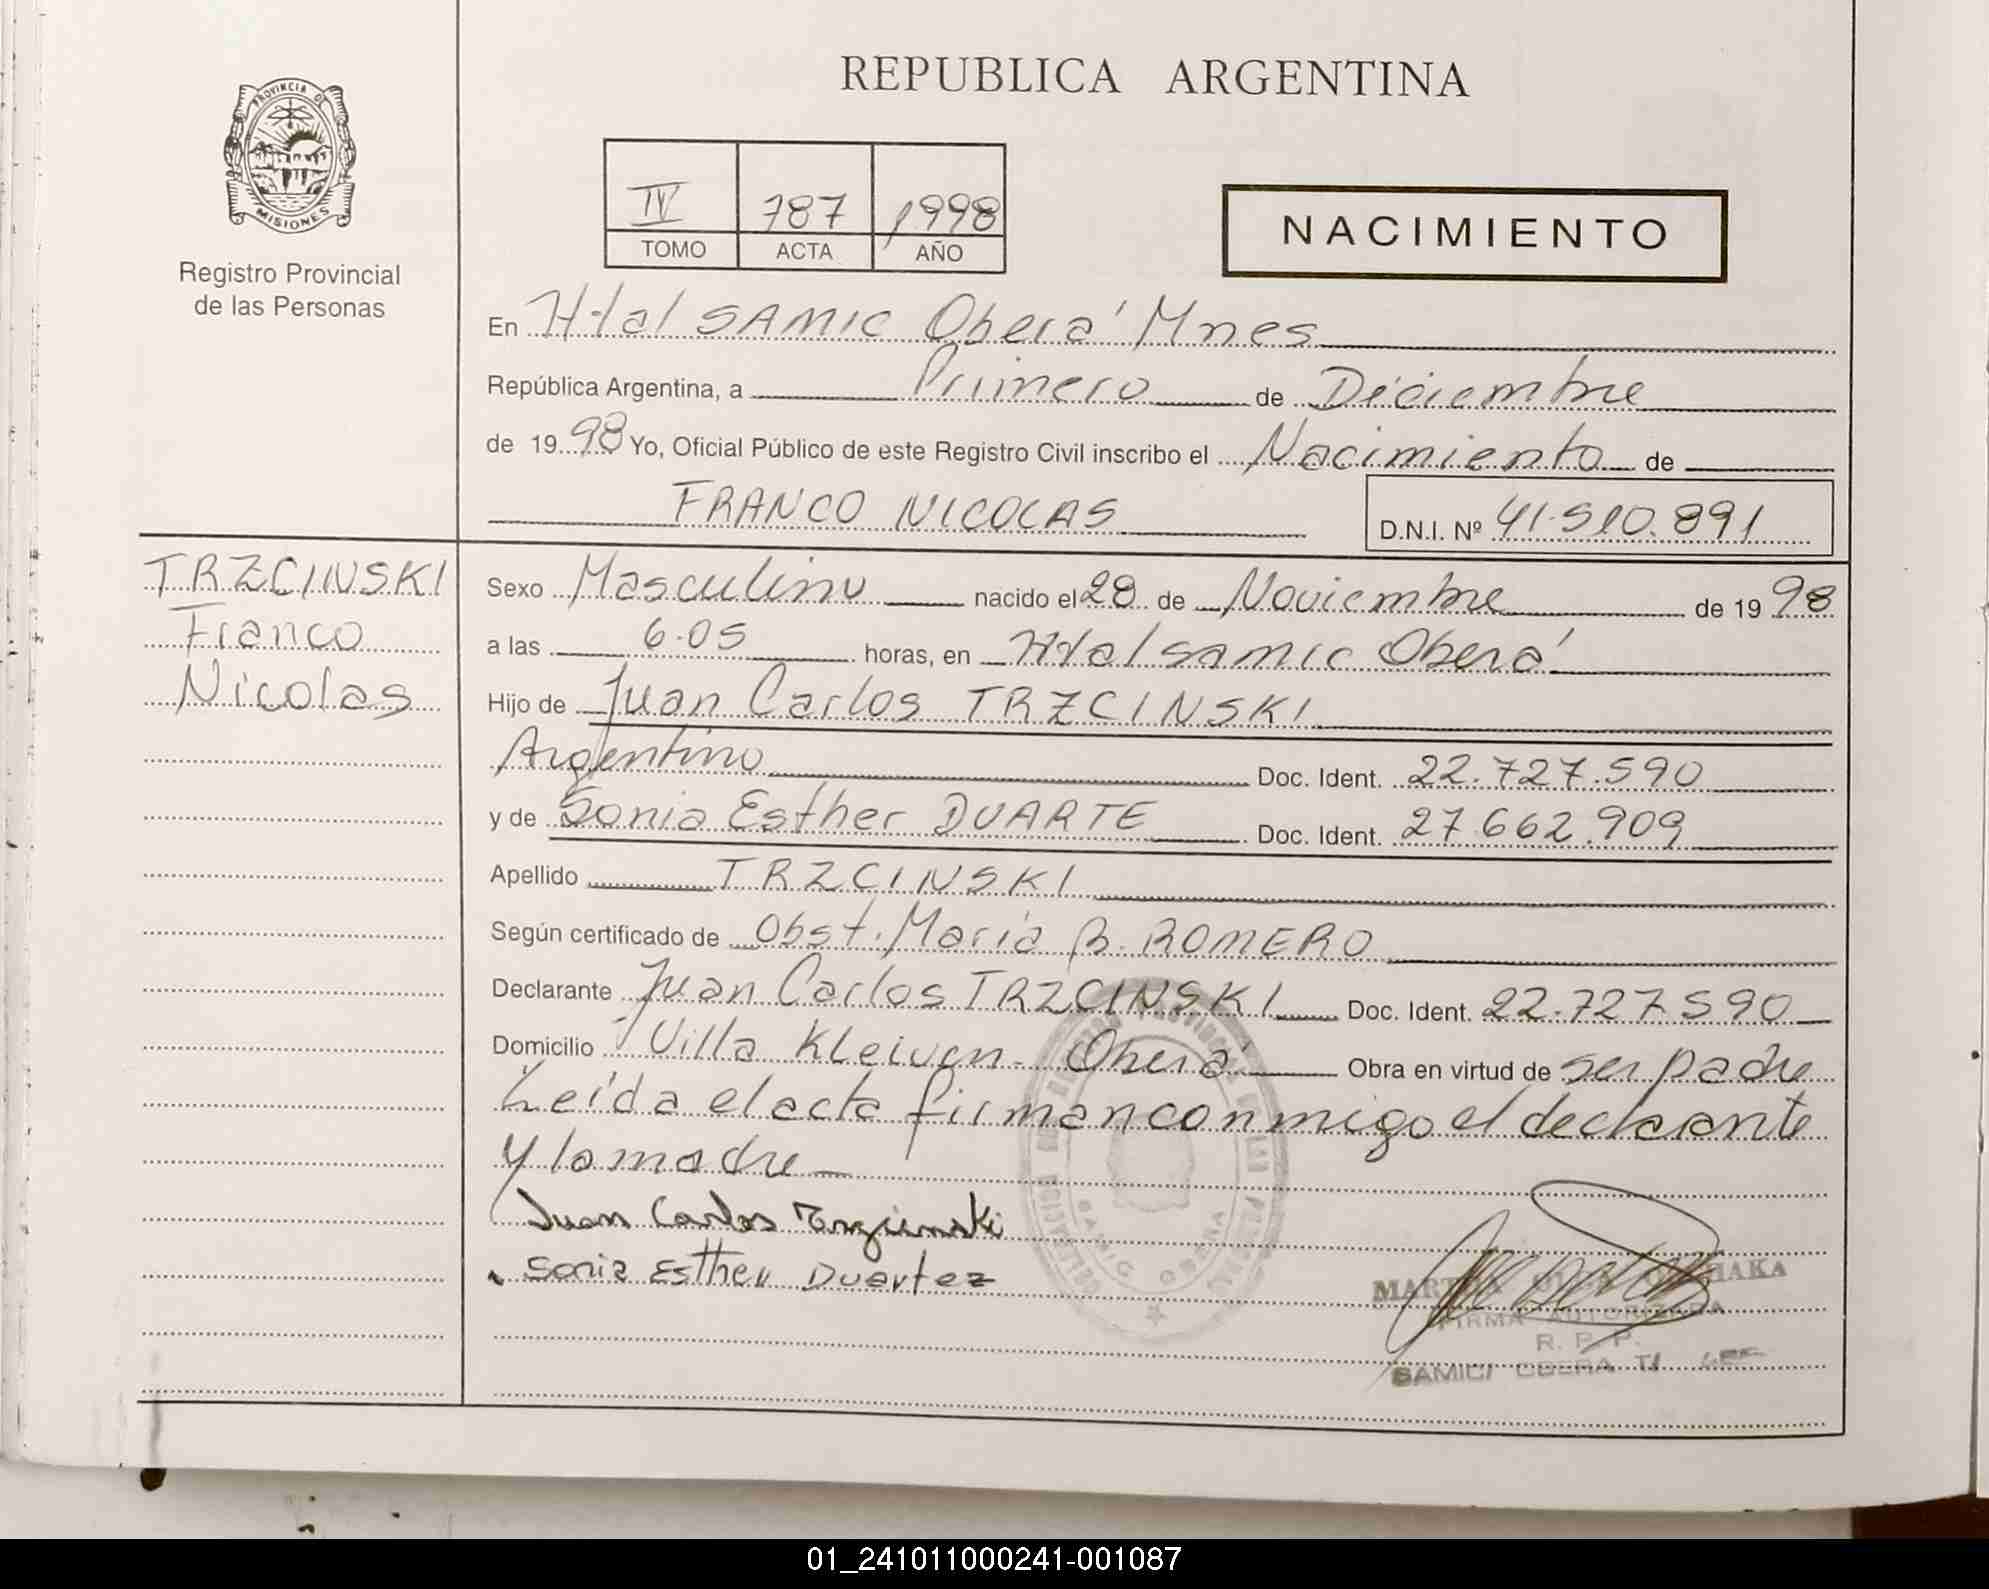 REPUBLICA ARGENTINA
PROVINCIA DE
MISIONES
Registro Provincial
de las Personas
IV 787 1998
TOMO ACTA AÑO
NACIMIENTO
En Htal SAMIC Oberá Mnes
República Argentina, a Primero de Diciembre
de 19 98 Yo, Oficial Público de este Registro Civil inscribo el Nacimiento de
FRANCO NICOLAS D.N.I. Nº 41.510.891
TRZCINSKI
Franco
Nicolas
Sexo Masculino nacido el 28 de Noviembre de 19 98
a las 6.05 horas, en Htal samic Oberá
Hijo de Juan Carlos TRZCINSKI
Argentino Doc. Ident. 22.727.590
y de Sonia Esther DUARTE Doc. Ident. 27.662.909
Apellido TRZCINSKI
Según certificado de Obst. Maria B. ROMERO
Declarante Juan Carlos TRZCINSKI Doc. Ident. 22.727.590
Domicilio Villa Kleiven - Oberá Obra en virtud de ser padre
Leída el acta firman conmigo el declarante
y la madre
Juan Carlos Trzcinski
Sonia Esther Duartez
SAMIC OBERA
FIRMA AUTORIZADA
R. P. P.
SAMIC OBERA
01_241011000241-001087